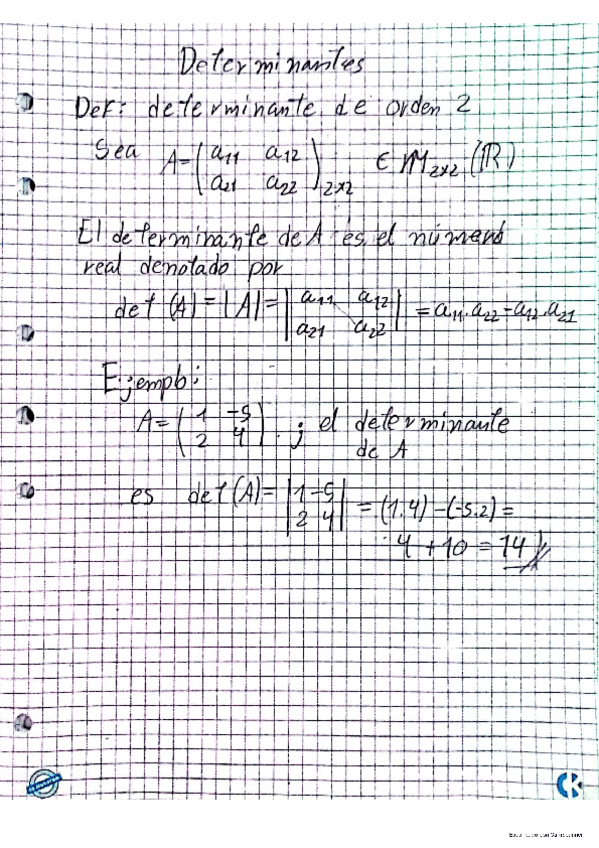 Determinantes
Def: determinante de orden 2
Sea A = ( a11 a12
a21 a22 )2x2 ∈ M2x2 (ℝ)
El determinante de A es el número
real denotado por
det (A) = |A| = | a11 a12
a21 a22 | = a11 . a22 - a12 . a21
Ejemplo:
A = ( 1 -5
2 4 ) ; el determinante
de A
es det (A) = | 1 -5
2 4 | = (1.4) - (-5.2) =
4 + 10 = 14